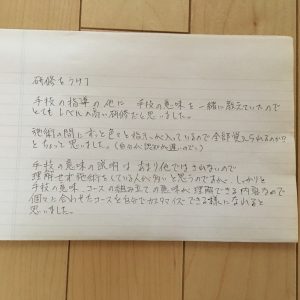 研修をうけて
手技の指導の他に 手技の意味を一緒に教えていたので
とてもレベルの高い研修だと思いました。
施術の間にずっと色々と指示が入っているので全部覚えられるのか?
とちょっと思いました。(自分が
手技の意味の説明は あまり他ではされないので
理解せず施術をしている人が多いと思うのですが、しっかりと
手技の意味、コースの組み立ての意味が理解できる内容なので
個々に合わせたコースを自分でカスタマイズできる様になれると
思いました。